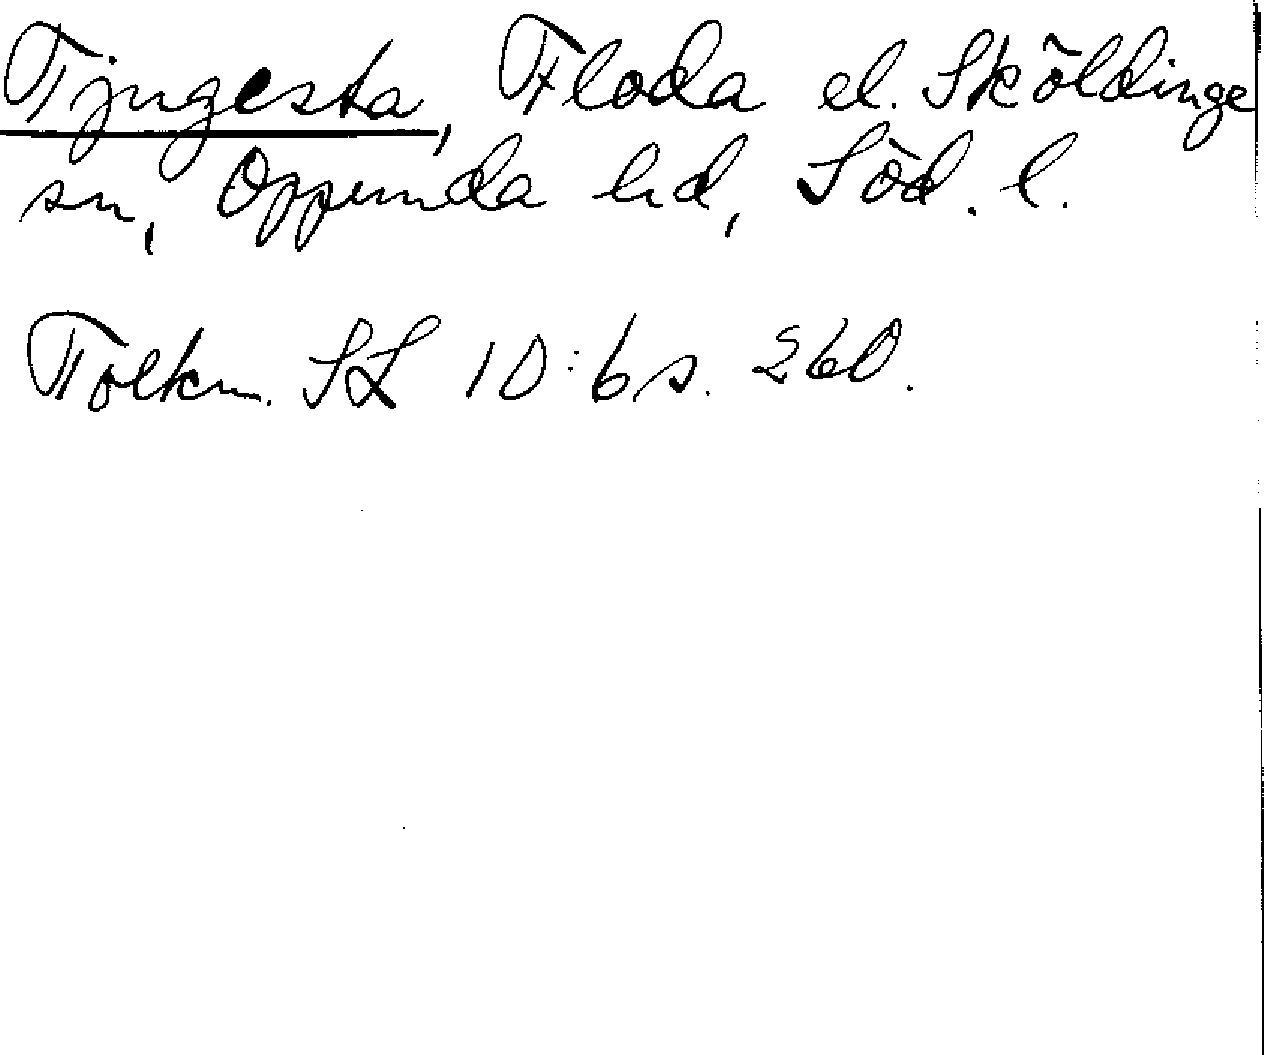 Tjugesta, Floda el. Sköldinge
sn, Oppunda hd, Söd. l.
Tolkn. SL 10:6 s. 260.